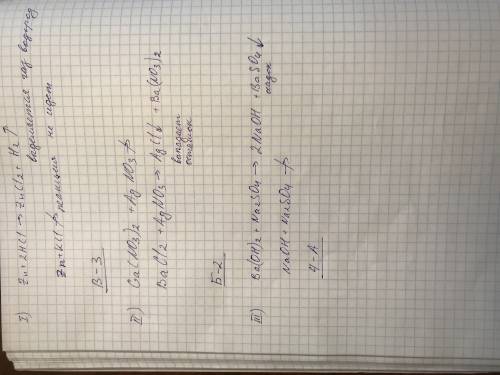 I) Zn + 2HCl → ZnCl2 + H2 ↑
выделяется газ водород
Zn + KCl ↛ реакция не идет
В - 3
II) Ca(NO3)2 + AgNO3 ↛
BaCl2 + AgNO3 → AgCl↓ + Ba(NO3)2
выпадает
Б - 2
III) Ba(OH)2 + Na2SO4 → 2NaOH + BaSO4↓
осадок
NaOH + Na2SO4 ↛
4 - А